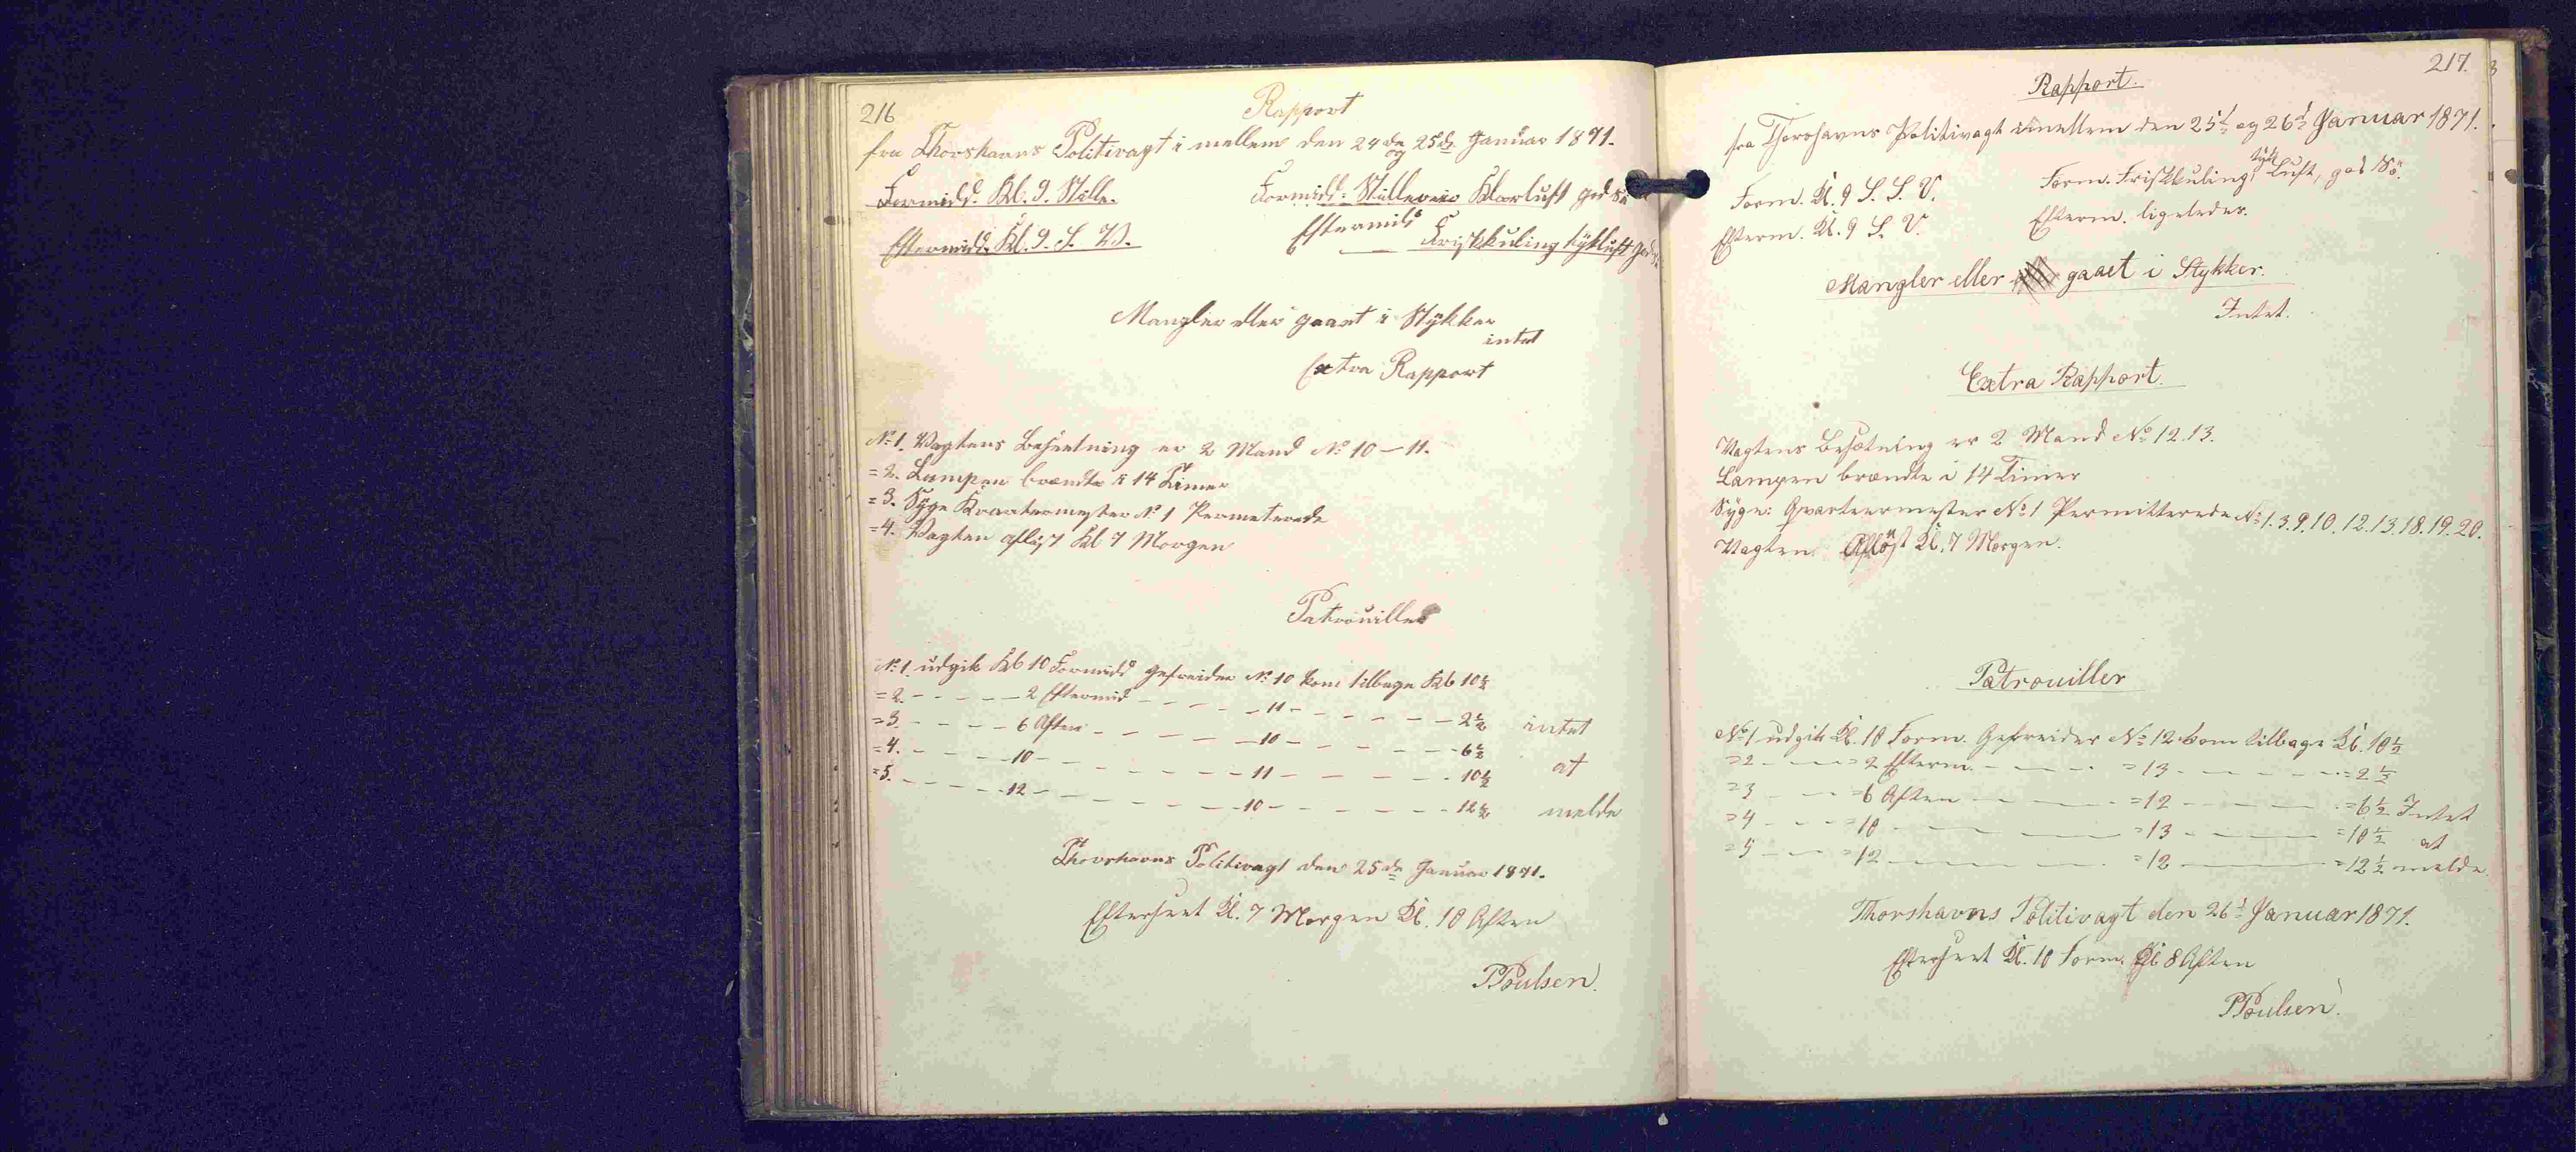 216
Rapport
fra Thorshavns Politivagt i mellem den 24de og 25de Januar 1871.
Formidd. Kl. 9. Stille. Formidd: Stilleveir Klarluft god Sø
Eftermidd. Kl. 9. S. V. Eftermidd Friskkuling tykluft god
Mangler eller gaaet i Stykker
intet
Extra Rapport
No 1. Vagtens Besætning er 2 Mand No 10 – 11.
= 2. Lampen brændte i 14 Timer
= 3. Syge Kvartermester No 1 Permeterede
= 4. Vagten afløst Kl 7 Morgen
Patrouiller
No 1. udgik Kl 10 Formidd Gefreider No 10 kom tilbage Kl 10½
= 2. - - - - 2 Eftermid - - - - 11 - - - - 2½ intet
= 3 - - - - 6 Aften - - - - 10 - - - - 6½
= 4. - - - - 10 - - - - 11 - - - - 10½ at
= 5. - - - - 12 - - - - 10 - - - - 12½ melde
Thorshavns Politivagt den 25de Januar 1871.
Efterseet Kl. 7 Morgen Kl. 10 Aften
PPoulsen.
217.
Rapport.
fra Thorshavns Politivagt imellem den 25d og 26d Januar 1871.
Form. Kl. 9 S. S. V. Form. Friskkuling, tyk Luft, god Sö.
Efterm. Kl. 9 S. V. Efterm. ligeledes.
Mangler eller gaaet i Stykker.
Intet.
Extra Rapport.
Vagtens Besætning er 2 Mand No 12. 13.
Lampen brændte i 14 Timer
Syge: Qvarteermester No 1 Permitterede No 1. 3. 9. 10. 12. 13. 18. 19. 20.
Vagten Afløst Kl. 7 Morgen.
Patrouiller
No 1 udgik Kl. 10 Form. Gefreider No 12 kom tilbage Kl. 10½
=2 - - - =2 Efterm. - - - =13 - - - =2½
=3 - - - =6 Aften - - - =12 - - - =6½ Intet
=4 - - - =10 - - - =13 - - - =10½ at
=5 - - - =12 - - - =12 - - - =12½ melde.
Thorshavns Politivagt den 26d Januar 1871.
Efterseet Kl. 10 Form. Kl 8 Aften
PPoulsen.